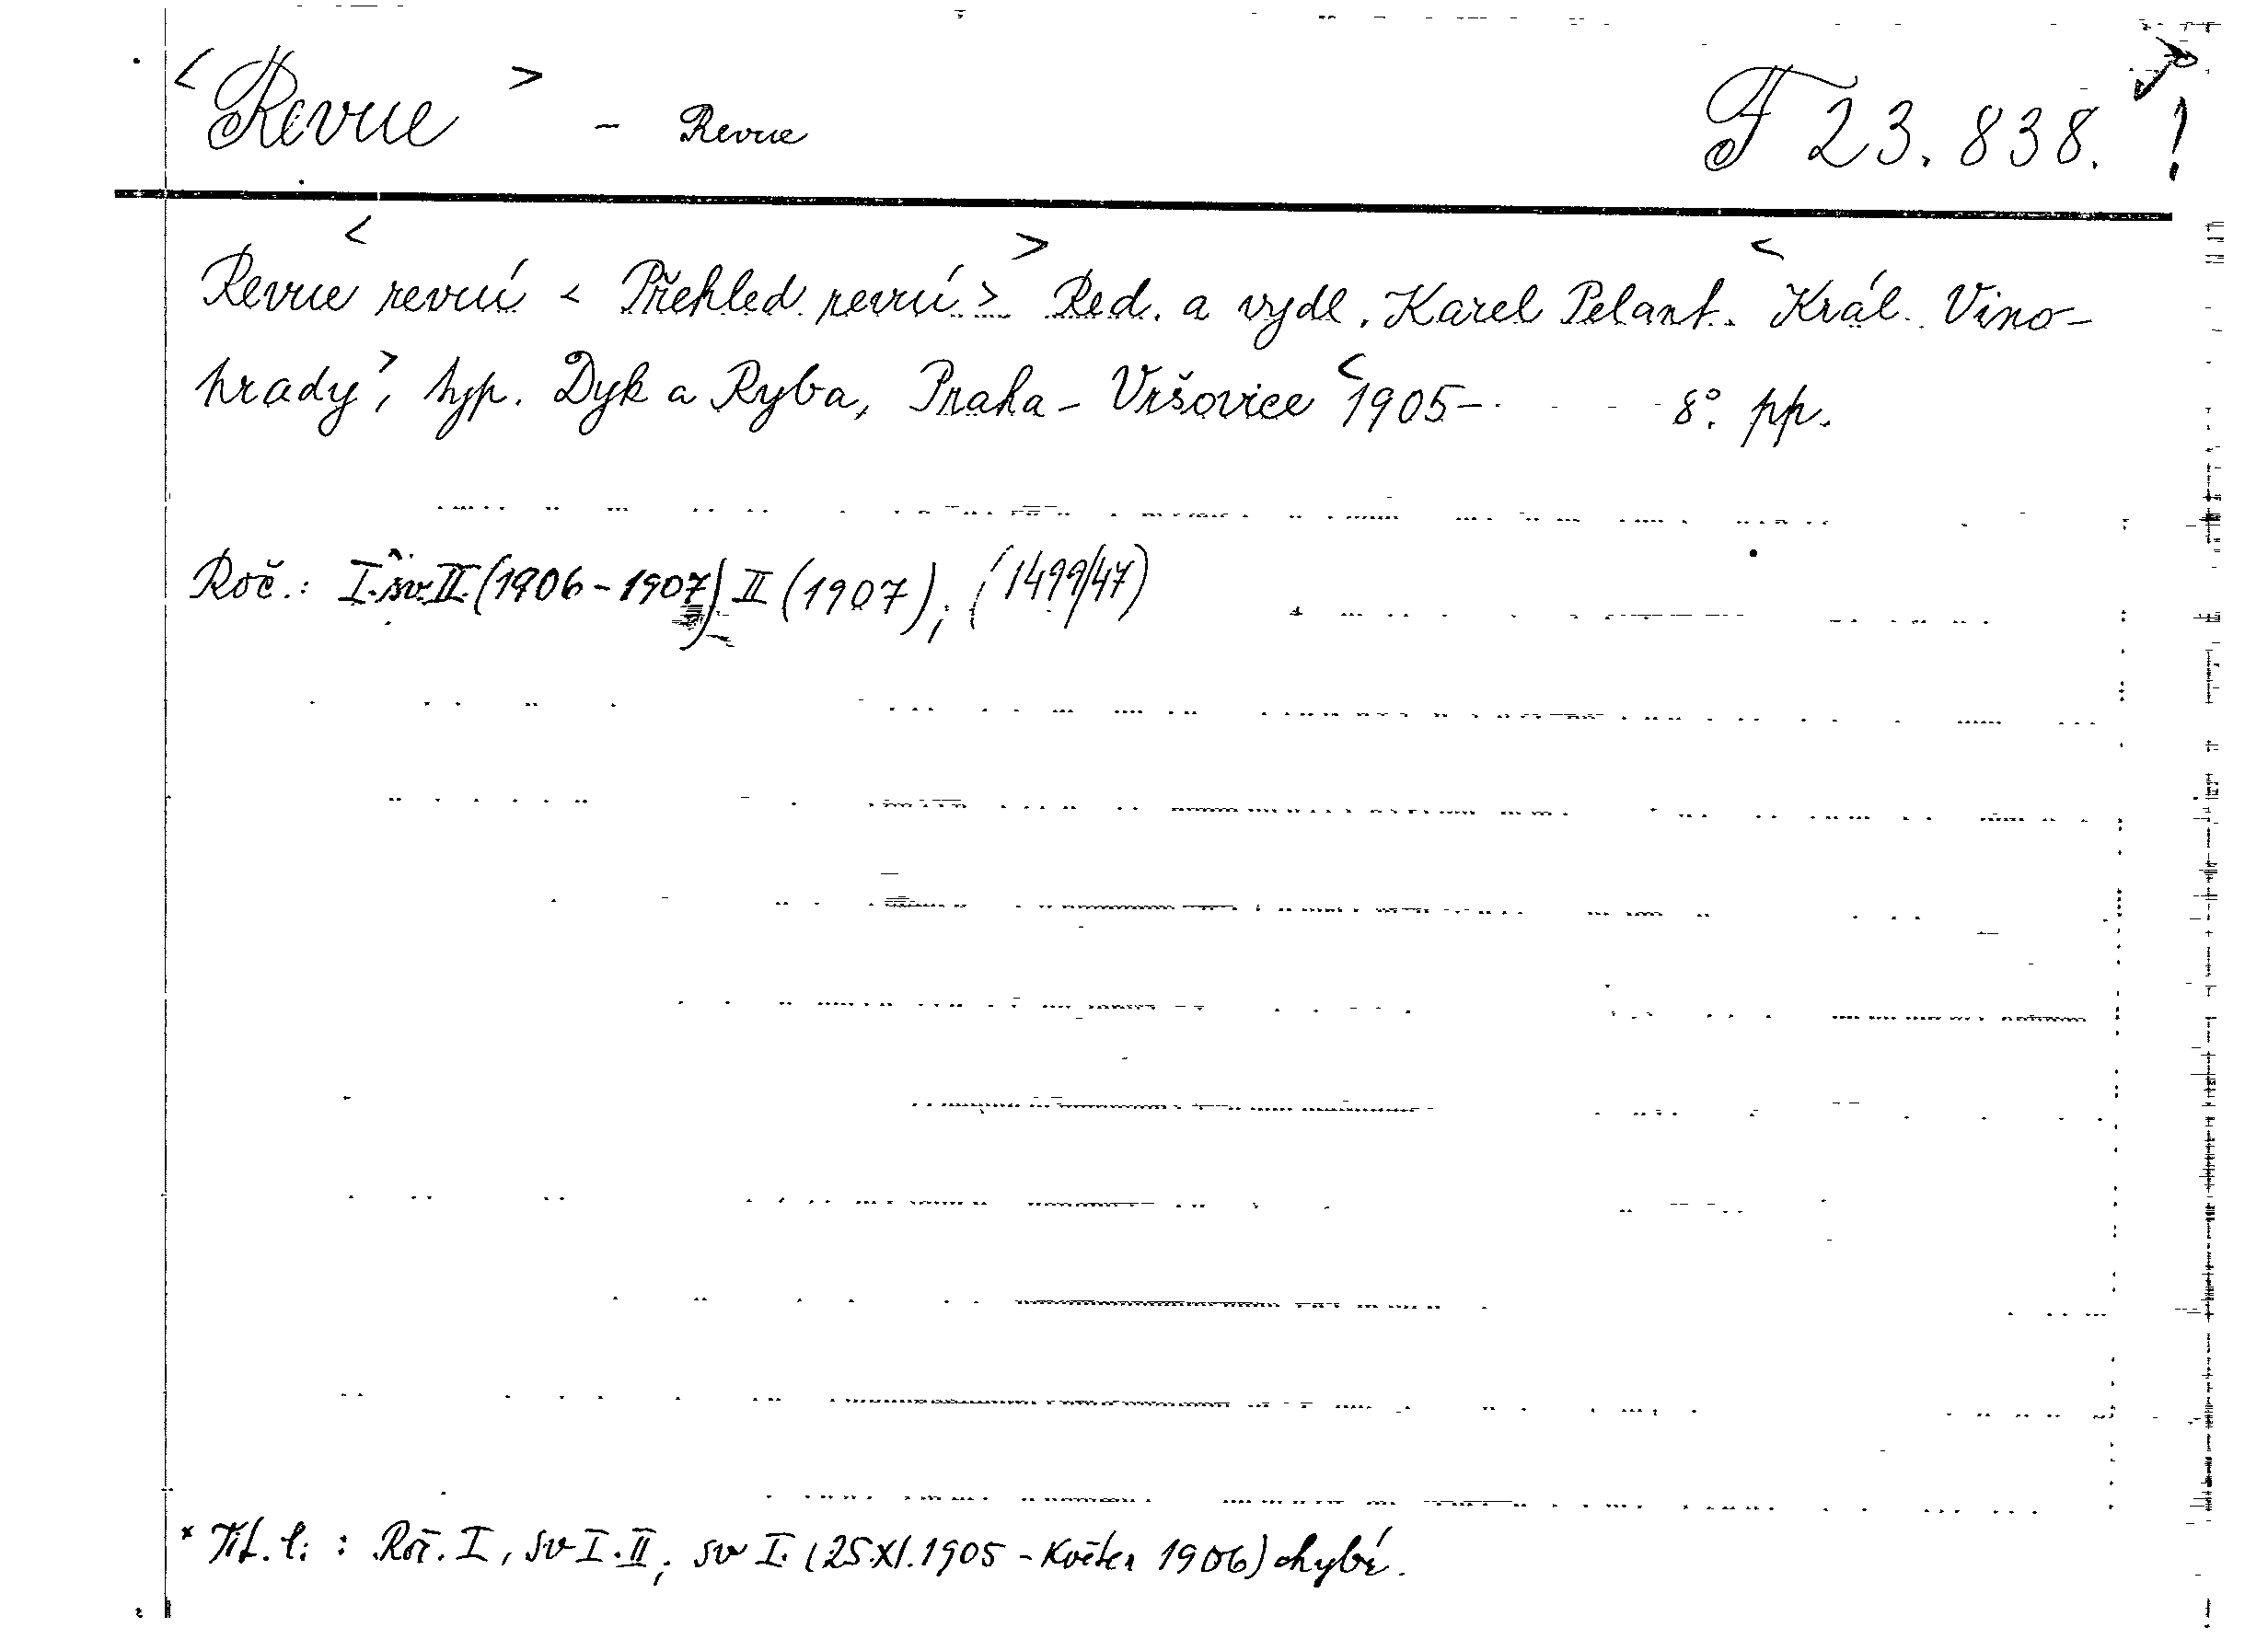 <Revue> - Revue F 23.838. !
Revue <revuí < Přehled revuí >> Red. a vydl. Karel Pelant. <Král. Vino-
hrady>, typ. Dyk a Ryba, Praha - Vršovice <1905- 8° pp.
Roč.: I. sv. II. (1906-1907) II (1907); (1499/47)
* Tit. l. : Roč. I, sv I. II; sv I. (25.XI.1905 - Květen 1906) chybí.